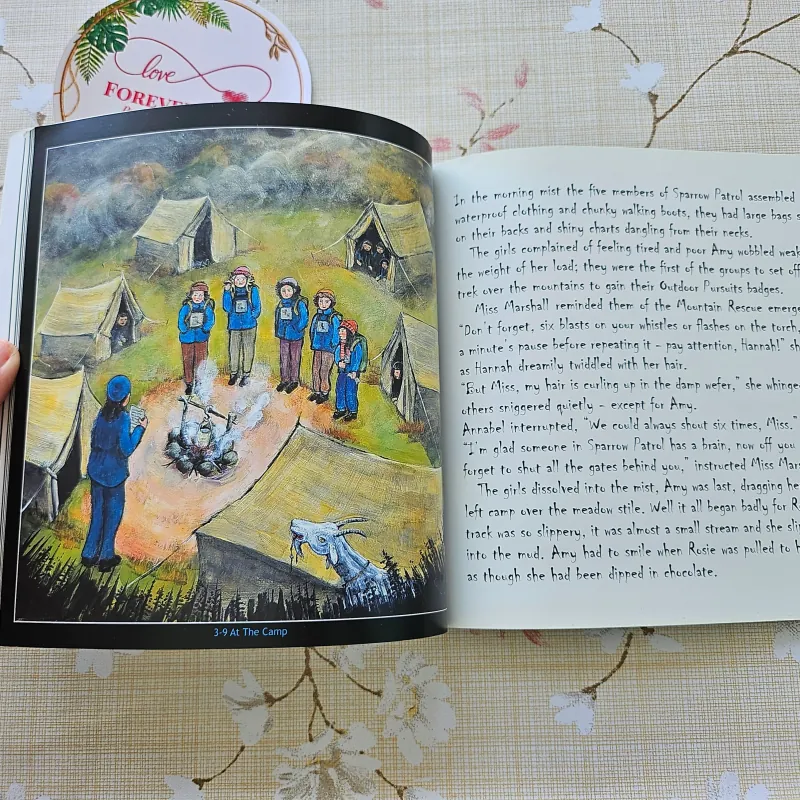 love
FOREVER
3-9 At The Camp
In the morning mist the five members of Sparrow Patrol assembled
waterproof clothing and chunky walking boots, they had large bags
on their backs and shiny charts dangling from their necks.
The girls complained of feeling tired and poor Amy wobbled
the weight of her load; they were the first of the groups to set off
trek over the mountains to gain their Outdoor Pursuits badges.
Miss Marshall reminded them of the Mountain Rescue
"Don't forget, six blasts on your whistles or flashes on the torch,
a minute's pause before repeating it – pay attention, Hannah!"
as Hannah dreamily twiddled with her hair.
"But Miss, my hair is curling up in the damp wefer," she
others sniggered quietly – except for Amy.
Annabel interrupted, "We could always shout six times, Miss."
"I'm glad someone in Sparrow Patrol has a brain, now off you
forget to shut all the gates behind you," instructed Miss
The girls dissolved into the mist, Amy was last, dragging
left camp over the meadow stile. Well it all began badly for
track was so slippery, it was almost a small stream and she
into the mud. Amy had to smile when Rosie was pulled to
as though she had been dipped in chocolate.